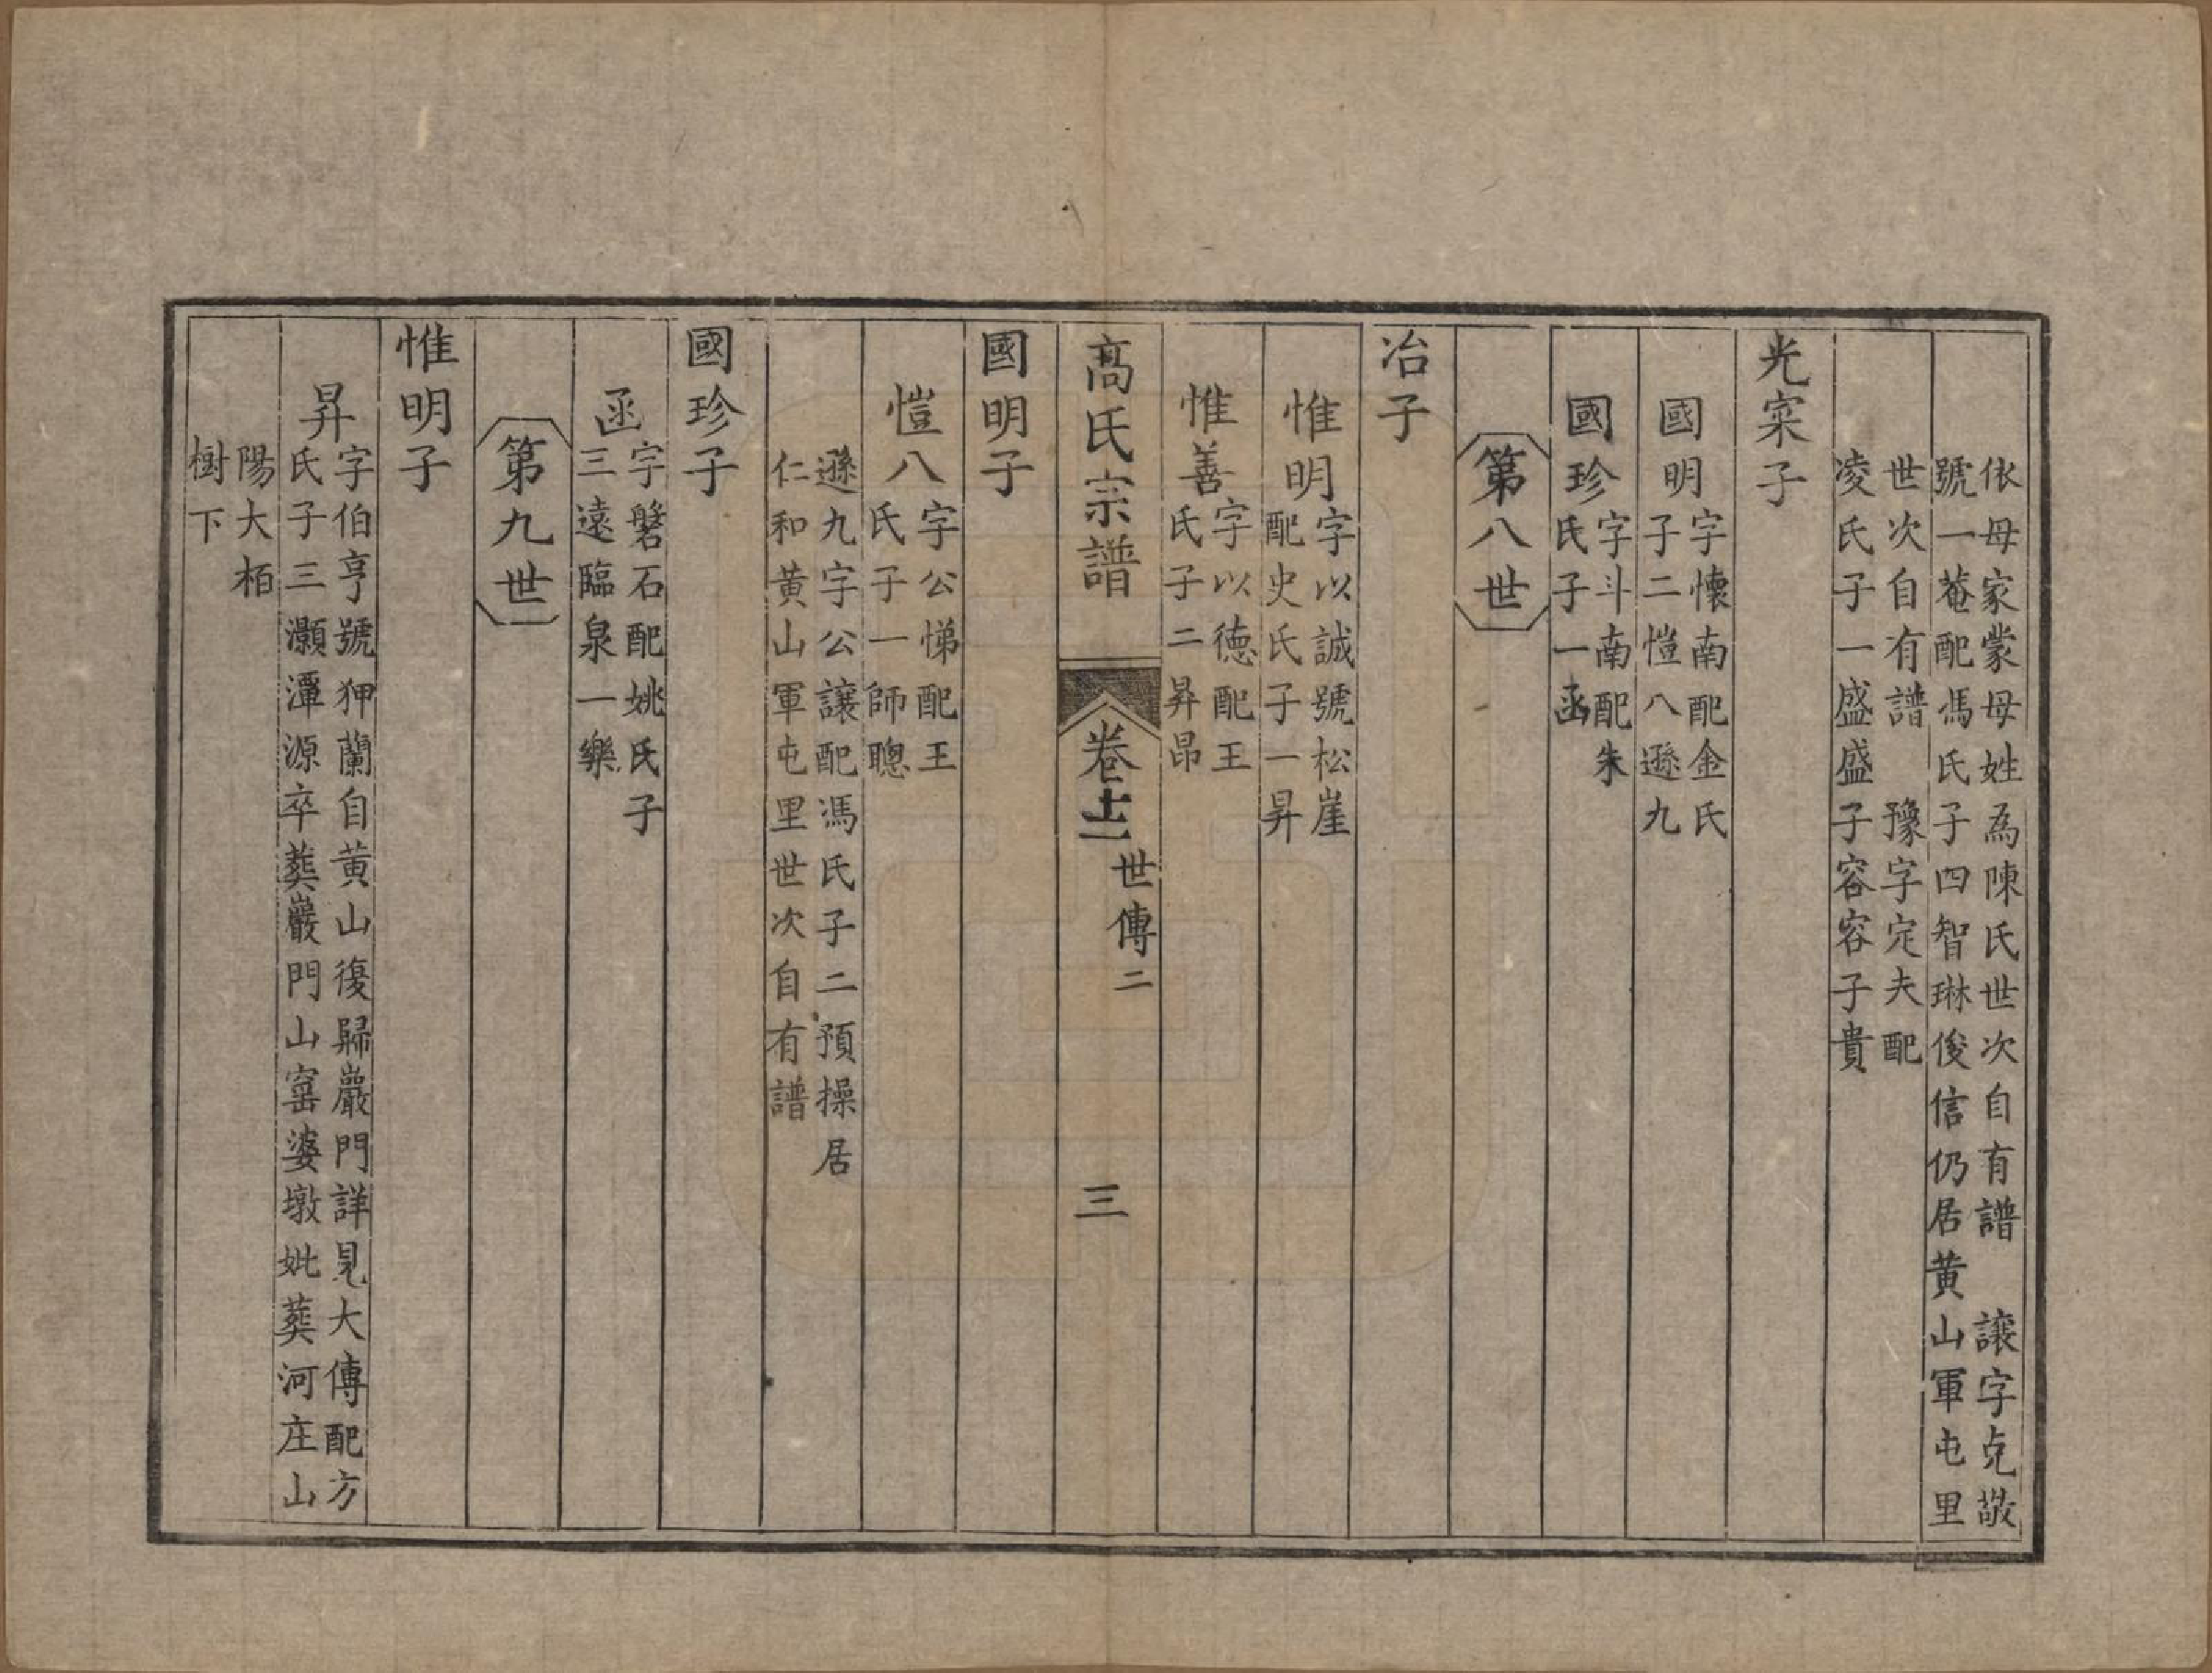 依母家蒙母姓為陳氏世次自有譜　讓字克敬
號一菴配馮氏子四智琳俊信仍居黄山軍屯里
世次自有譜　豫字定夫配
凌氏子一盛盛子容容子貴
光寀子
國明字懷南配金氏
子二愷八遜九
國珍字斗南配朱
氏子一函
第八世
冶子
惟明字以誠號松崖
配史氏子一昇
惟善字以德配王
氏子二昇昂
高氏宗譜
卷十二
世傳二
三
國明子
愷八字公悌配王
氏子一師聰
遜九字公讓配馮氏子二預操居
仁和黄山軍屯里世次自有譜
國珍子
函字磐石配姚氏子
三遠臨泉一樂
第九世
惟明子
昇字伯亨號狎蘭自黄山復歸巖門詳見大傳配方
氏子三灝潭源卒葬巖門山窑婆墩妣葬河庄山
陽大栢
樹下